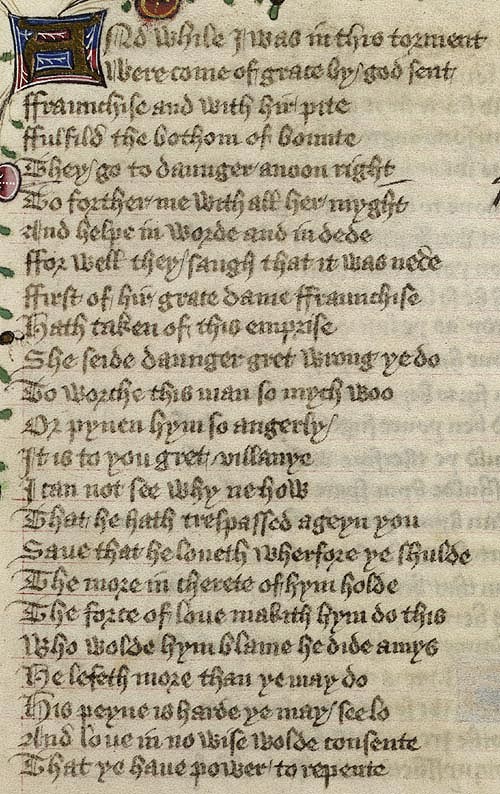 And while I was in this torment
Were come of grace by god sent
ffraunchise and with hir pite
ffulfild the bothom of bounte
They go to daunger anoon right
To forther me with all her myght
And helpe in worde and in dede
ffor well they saugh that it was nede
ffirst of hir grace dame ffraunchise
Hath taken of this emprise
She seide daunger gret wrong ye do
To worche this man so mych woo
Or pynen hym so angerly
It is to you gret villanye
I can not see why ne how
That he hath trespassed ageyn you
Save that he loueth wherfore ye shulde
The more in cherete of hym holde
The force of loue makith hym do this
Who wolde hym blame he dide amys
He leseth more than ye may do
His peyne is harde ye may see lo
And loue in no wise wolde consente
That ye haue power to repente